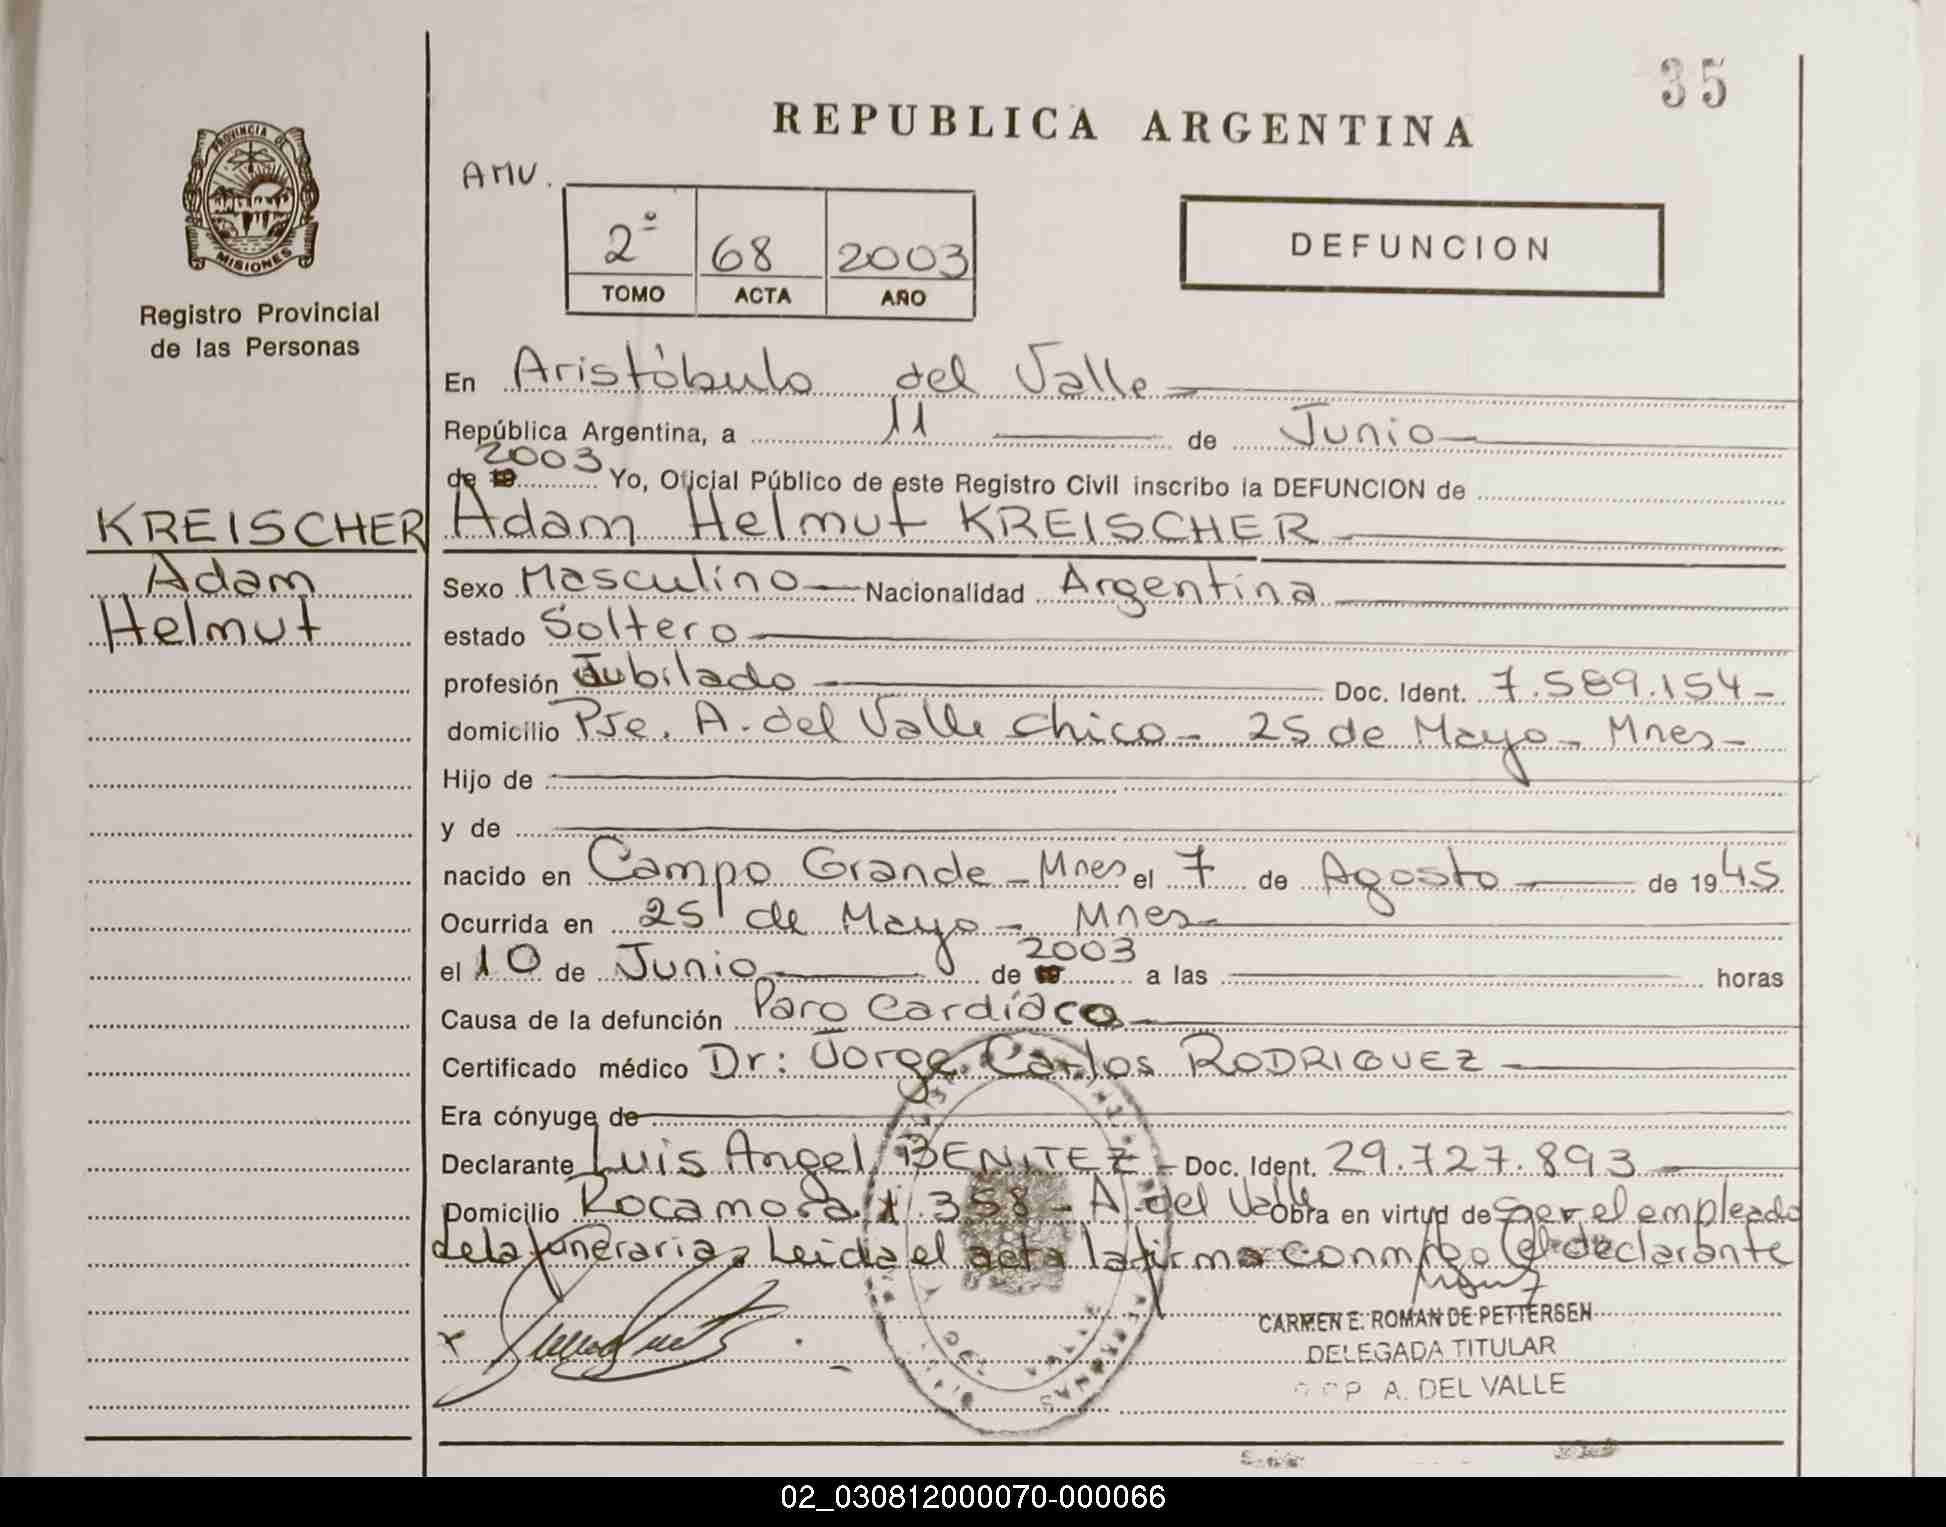 35
REPUBLICA ARGENTINA
PROVINCIA DE
MISIONES
Registro Provincial
de las Personas
AMV.
2º 68 2003
TOMO ACTA AÑO
DEFUNCION
En Aristóbulo del Valle
República Argentina, a 11 de Junio
de 2003 Yo, Oficial Público de este Registro Civil inscribo la DEFUNCION de
KREISCHER
Adam
Helmut
Adam Helmut KREISCHER
Sexo Masculino Nacionalidad Argentina
estado Soltero
profesión Jubilado Doc. Ident. 7.589.154
domicilio Pje. A. del Valle Chico - 25 de Mayo - Mnes
Hijo de
y de
nacido en Campo Grande - Mnes el 7 de Agosto de 1945
Ocurrida en 25 de Mayo - Mnes
el 10 de Junio de 2003 a las horas
Causa de la defunción Paro Cardíaco
Certificado médico Dr: Jorge Carlos RODRIGUEZ
Era cónyuge de
Declarante Luis Angel BENITEZ Doc. Ident. 29.727.893
Domicilio Rocamora 358 - A. del Valle Obra en virtud de ser el empleado
de la funeraria. Leida el acta la firma conmigo el declarante
CARMEN E. ROMAN DE PETTERSEN
DELEGADA TITULAR
A. DEL VALLE
02_030812000070-000066